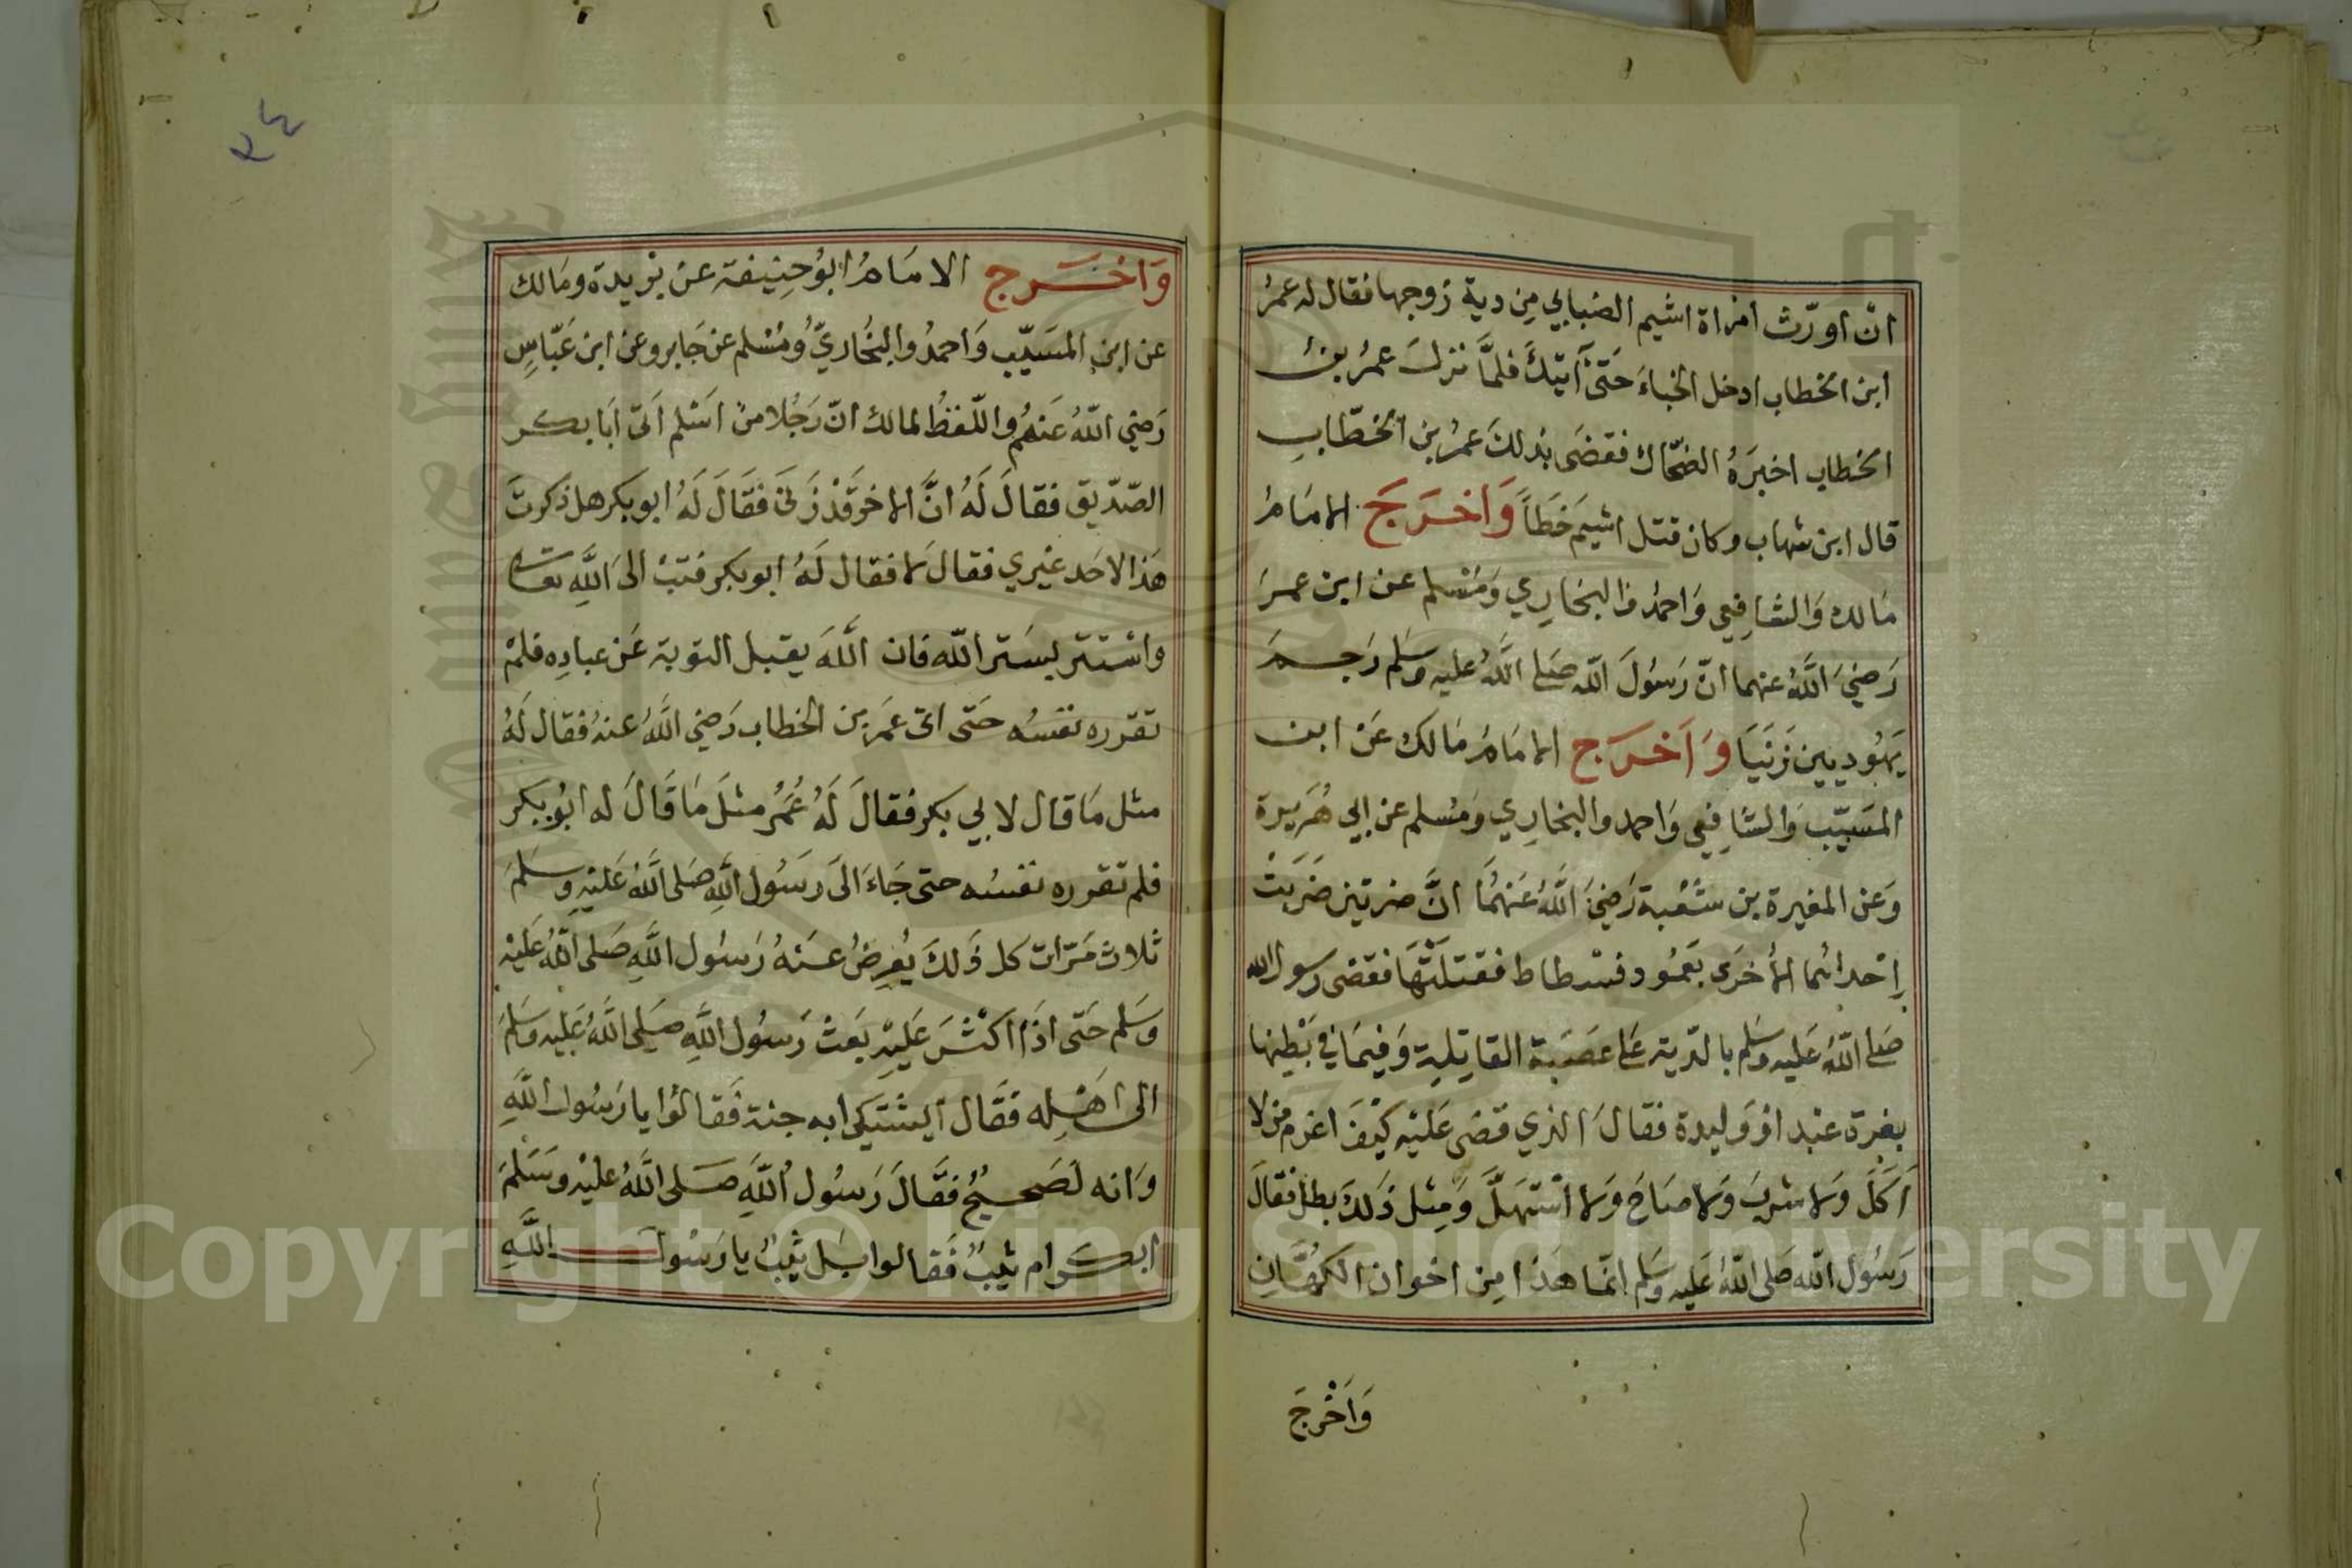 ان اورّث امراة اشيم الضبابي مِن دية زوجها فقال له عمرُ
ابن الخطاب ادخل الخباءَ حَتّى آتيكَ فلمَّا نزلَ عمرُ بنُ
الخطاب اخبرَهُ الضحّاك فقضَى بذلكَ عمرُ بن الخطّابِ
قال ابن شهاب وكان قتل اشيمَ خَطَأً وَاخرَجَ الامَامُ
مَالك وَالشافِعي وَاحمدُ والبخارِي وَمُسْلم عن ابن عمرَ
رَضيَ اللَّهُ عنهما انّ رَسُولَ اللّه صَلى اللَّهُ عليه وسَلم رَجمَ
يَهُوديين زَنَيَا وَاَخرَج الامَامُ مَالك عَن ابن
المسَيّب وَالشافِعي وَاحمد والبخارِي وَمُسلم عن ابي هُرَيرة
وَعن المغيرة بن شُعْبة رَضيَ اللَّهُ عَنهُمَا انَّ ضرتين ضَرَبَتْ
اِحْداهُما الأخرَى بعَمُود فسْطاط فقتلَتْهَا فقضى رسول الله
صَلى اللّهُ عَليه وسَلم بالدّية عَلى عَصَبة القاتِلة وَفيمَا في بَطْنِها
بغرة عَبْد اوْ وَليدة فقالَ الذي قضى عَلَيْهِ كيْفَ اغرم من لا
اَكَلَ وَلا شربَ وَلا صَاحَ وَلا اسْتهَلَّ وَمِثل ذَلكَ بطل فقالَ
رَسُول اللّه صَلى اللّهُ عَليه وسَلم انمّا هَذا مِن اخوان الكهَّانِ
وَاَخْرجَ
٣٤
وَاخرَج الامَامُ ابوُ حنِيفة عن بُريدة ومَالك
عن ابن المسَيّب وَاحمدُ والبخُاريّ وَمُسْلم عن جَابر وعن ابن عَبّاسٍ
رَضي اللّهُ عَنهُم واللّفظُ لمالك انّ رَجُلا منْ اسَلم اتى اَبَا بكر
الصّدّيق فقالَ لَهُ انَّ الاخر قَدْ زَنى فَقَالَ لَهُ ابو بكر هل ذكرتَ
هَذا لاحَد غيْري فقالَ لا فقال لَهُ ابو بكر فتبْ الى اللَّهِ تعالى
واسْتتر بسَتر اللّه فان اللَّهَ يقبل التوبة عَن عبادِه فلمْ
تقرره نفسُه حَتى اتى عمَر بن الخطاب رَضي اللَّهُ عنهُ فقال لَهُ
مثل مَا قال لابي بكر فقالَ لَهُ عُمَرُ مثلَ مَا قَالَ له ابوُ بكر
فلم تقرره نفسُه حتى جَاءَ الىَ رَسُول اللَّهِ صَلى اللَّهُ عَليْهِ وسَلمَ
ثلاث مَرّات كل ذَلكَ يُعرِضُ عَنهُ رَسُول اللَّهِ صَلى اللَّهُ عَليْه
وسَلم حَتى اذَا اكثَرَ عَليْهِ بعَثَ رَسُول اللَّهِ صَلى اللَّهُ عَليْه وسَلمَ
الى اهْله فقَال ايَشْتكى ابه جنة فَقالوُا يا رَسُول اللَّهِ
وَانه لَصَحيحٌ فقَالَ رَسُول اللَّهِ صَلى اللَّهُ عَليْهِ وسَلمَ
ابكر ام ثيبٌ فَقالوا بَل ثيبٌ يا رَسُول اللَّهِ
Copyright © King Saud University